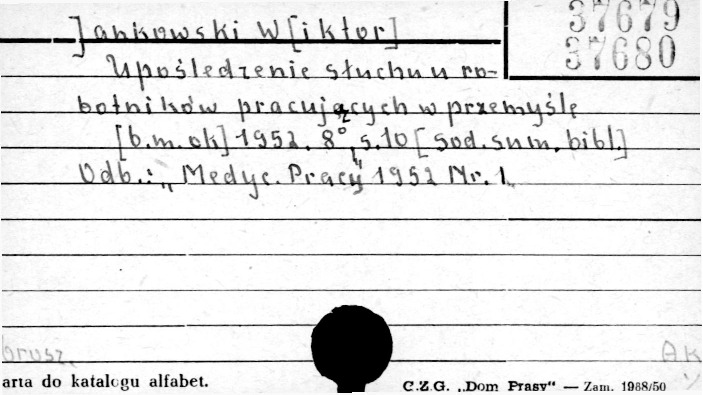 Jankowski W[iktor]
37679
37680
Upośledzenie słuchu u ro-
botników pracujących w przemyśle
[b.m.ok] 1952. 8°, s.10 [Sod. sum. bibl.]
Odb.: „Medyc. Pracy" 1952 Nr. 1.
brosz.
AK
arta do katalogu alfabet.
C.Z.G. „Dom Prasy" — Zam. 1968/50